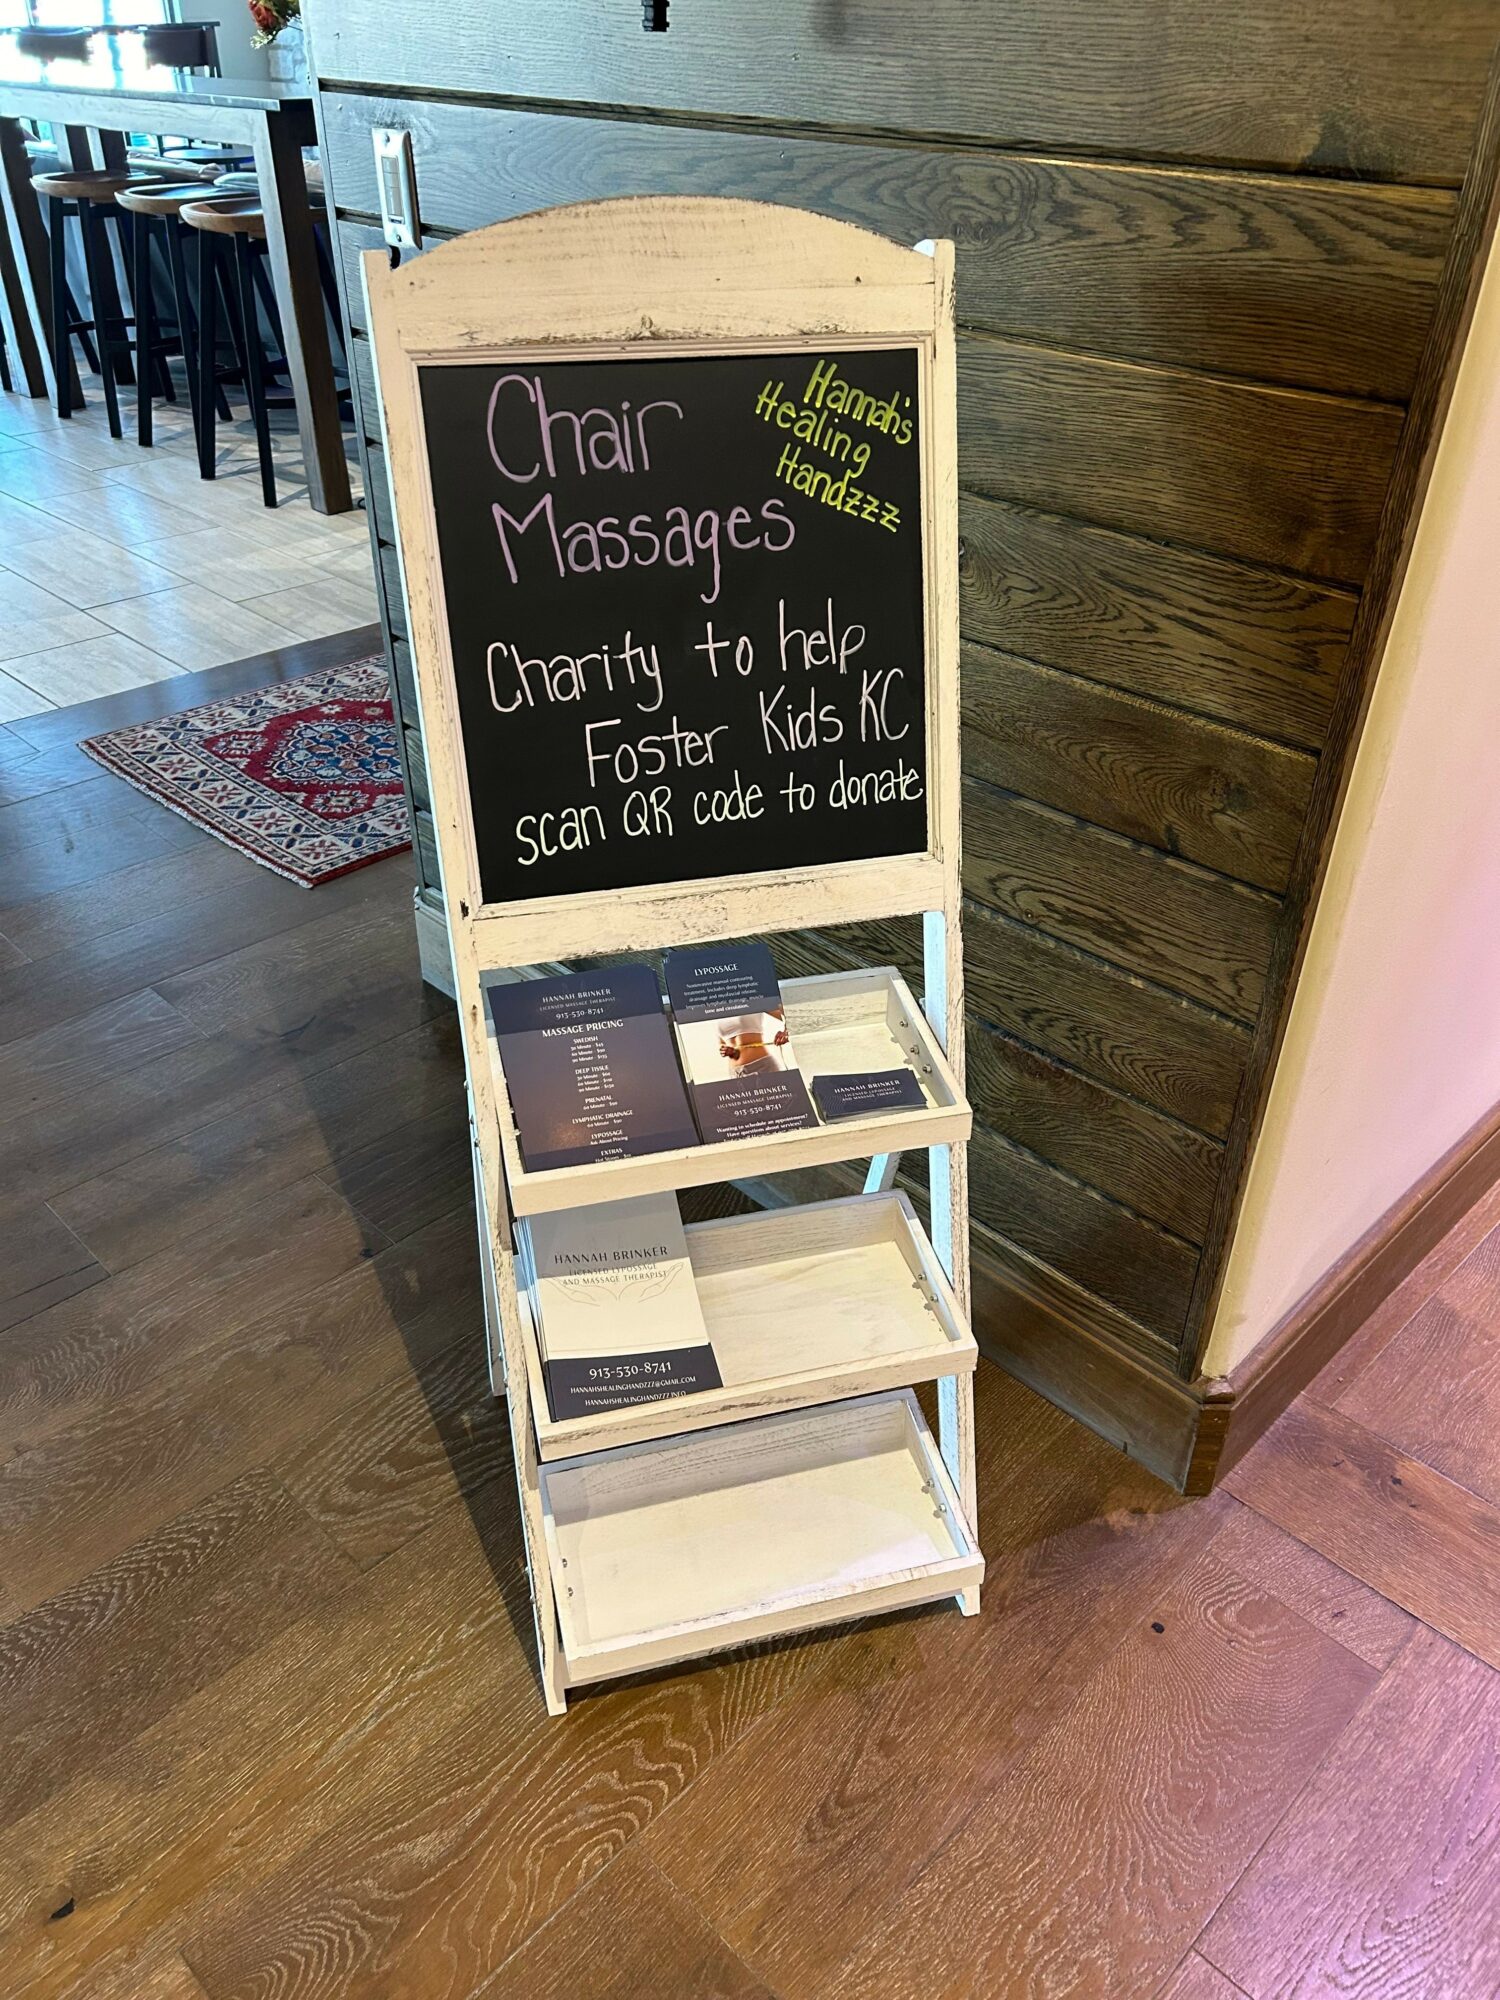 Chair
Massages
Hannah's
Healing
Handzzz
Charity to help
Foster Kids KC
scan QR code to donate
HANNAH BRINKER
LICENSED MASSAGE THERAPIST
913-530-8741
MASSAGE PRICING
SWEDISH
DEEP TISSUE
PRENATAL
60 Minute - $90
LYMPHATIC DRAINAGE
60 Minute - $90
LYPOSSAGE
Ask About Pricing
EXTRAS
LYPOSSAGE
Noninvasive manual contouring
treatment. Includes deep lymphatic
drainage and myofascial release.
Improves lymphatic drainage, muscle
tone and circulation.
HANNAH BRINKER
LICENSED MASSAGE THERAPIST
913-530-8741
Wanting to schedule an appointment?
Have questions about services?
HANNAH BRINKER
LICENSED LYPOSSAGE
AND MASSAGE THERAPIST
HANNAH BRINKER
LICENSED LYPOSSAGE
AND MASSAGE THERAPIST
913-530-8741
HANNAHSHEALINGHANDZZZ@GMAIL.COM
HANNAHSHEALINGHANDZZZ.INFO